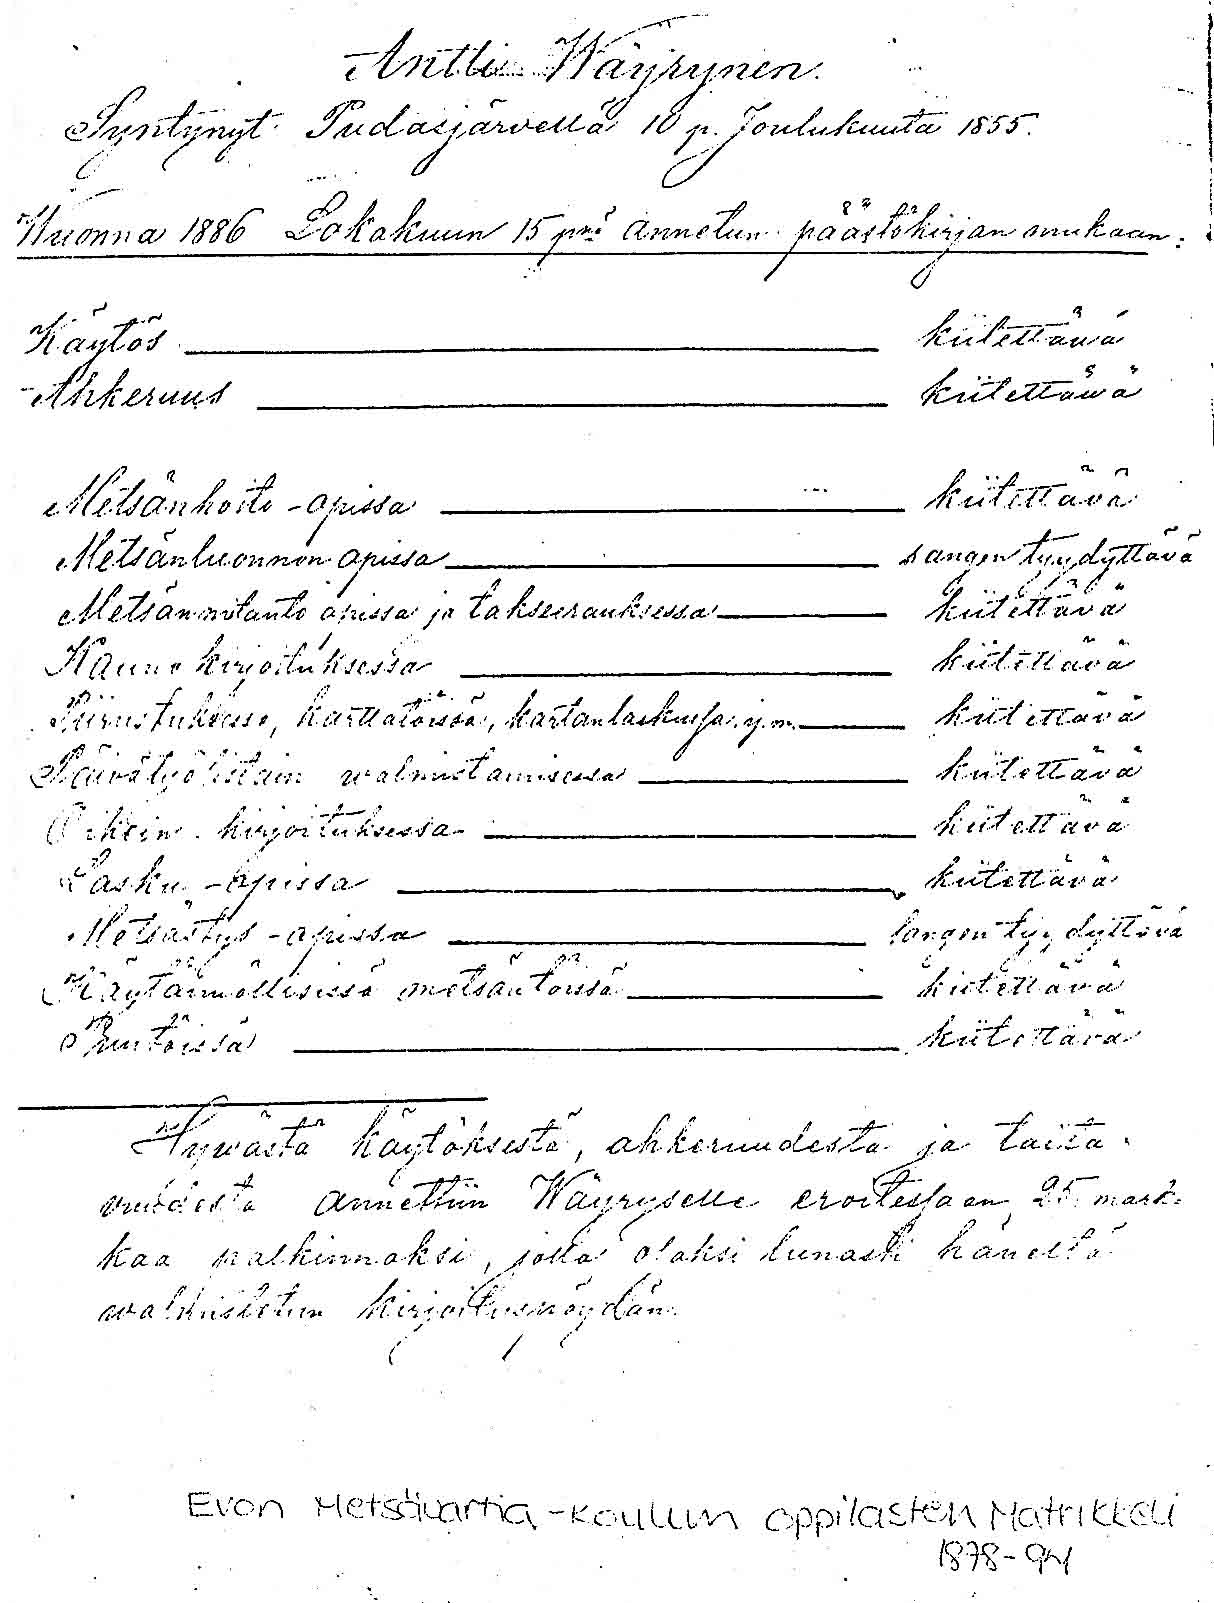 Antti Wäyrynen.
Syntynyt Pudasjärvellä 10 p. Joulukuuta 1855.
Wuonna 1886 Lokakuun 15 pnä annetun päästökirjan mukaan:
Käytös kiitettävä
Ahkeruus kiitettävä
Metsänhoito-opissa kiitettävä
Metsänluonnon opissa sangen tyydyttävä
Metsänmitanto opissa ja takseerauksessa kiitettävä
Kauno kirjoituksessa kiitettävä
Piirustuksessa, karttatöissä, kartanlaskussa y.m. kiitettävä
Päivätyölistain walmistamisessa kiitettävä
Oikein kirjoituksessa kiitettävä
Lasku-opissa kiitettävä
Metsästys-opissa sangen tyydyttävä
Käytännöllisissä metsäntöissä kiitettävä
Puutöissä kiitettävä
Hywästä käytöksestä, ahkeruudesta ja taita-
vuudesta annettiin Wäyryselle eroitessaan 25 mark-
kaa palkinnoksi, jolla olaksi lunasti häneltä
walmistetun kirjoituspöydän.
Evon Metsävartia-koulun oppilasten Matrikkeli
1878-94